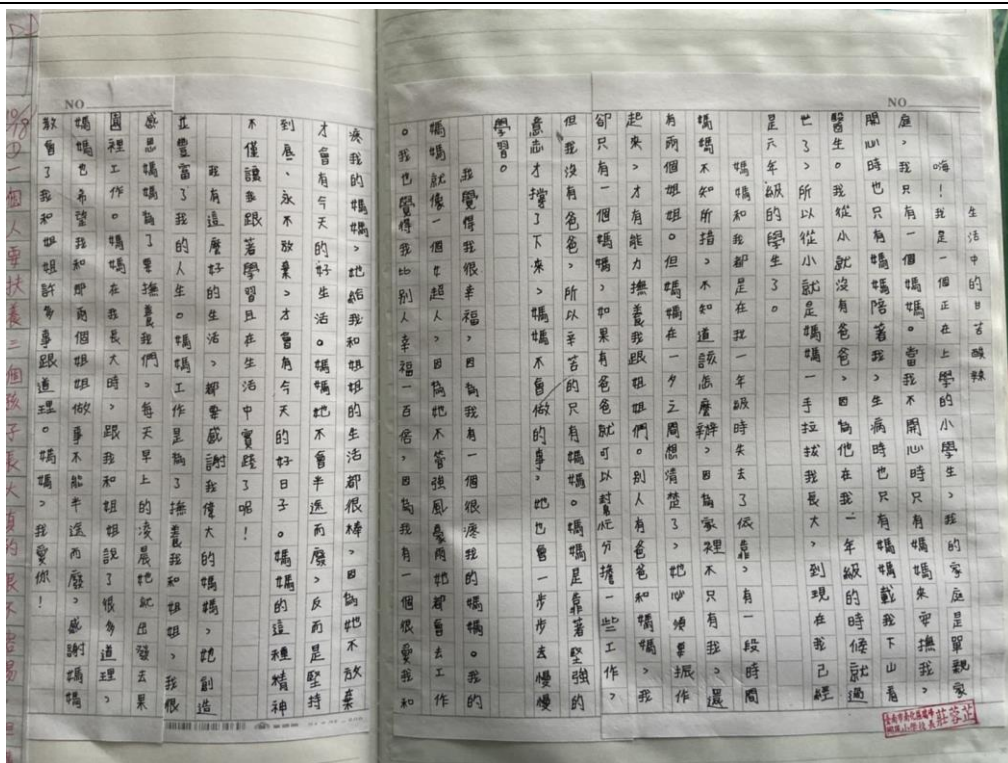 生活中的甘苦酸辣
嗨！我是一個正在上學的小學生，我的家庭是單親家
庭，我只有一個媽媽。當我不開心時只有媽媽來安撫我，
開心時也只有媽媽陪著我，生病時也只有媽媽載我下山看
醫生。我從小就沒有爸爸，因為他在我一年級的時候就過
世了，所以從小就是媽媽一手拉拔我長大，到現在我已經
是六年級的學生了。
媽媽和我都是在我一年級時失去了依靠，有一段時間
媽媽不知所措，不知道該怎麼辦，因為家裡不只有我，還
有兩個姐姐。但媽媽在一夕之間想清楚了，她必須要振作
起來，才有能力撫養我跟姐姐們。別人有爸爸和媽媽，我
卻只有一個媽媽，如果有爸爸就可以幫忙分擔一些工作，
但我沒有爸爸，所以辛苦的只有媽媽。媽媽一是靠著堅強的
意志才撐了下來，媽媽不會做的事，她也會一步步去慢慢
學習。
我覺得我很幸福，因為我有一個很疼我的媽媽。我的
媽媽就像一個女超人，因為她不管強風豪雨她都會去工作
。我也覺得我比別人幸福一百倍，因為我有一個很愛我和
疼我的媽媽，她給我和姐姐的生活都很棒，因為她不放棄
才會有今天的好生活。媽媽她不會半途而廢，反而是堅持
到底、永不放棄，才會有今天的好日子。媽媽的這種精神
不僅讓我跟著學習且在生活中實踐了呢！
我有這麼好的生活，都要感謝我偉大的媽媽，她創造
並豐富了我的人生。媽媽工作是為了撫養我和姐姐，我很
感恩媽媽為了要撫養我們，每天早上的凌晨她就出發去果
園裡工作。媽媽在我長大時，跟我和姐姐說了很多道理，
媽媽也希望我和那兩個姐姐做事不能半途而廢，感謝媽媽
教會了我和姐姐許多事跟道理。媽媽，我愛你！
一個人要扶養三個孩子長大真的很不容易
NO
NO
莊蓉芷